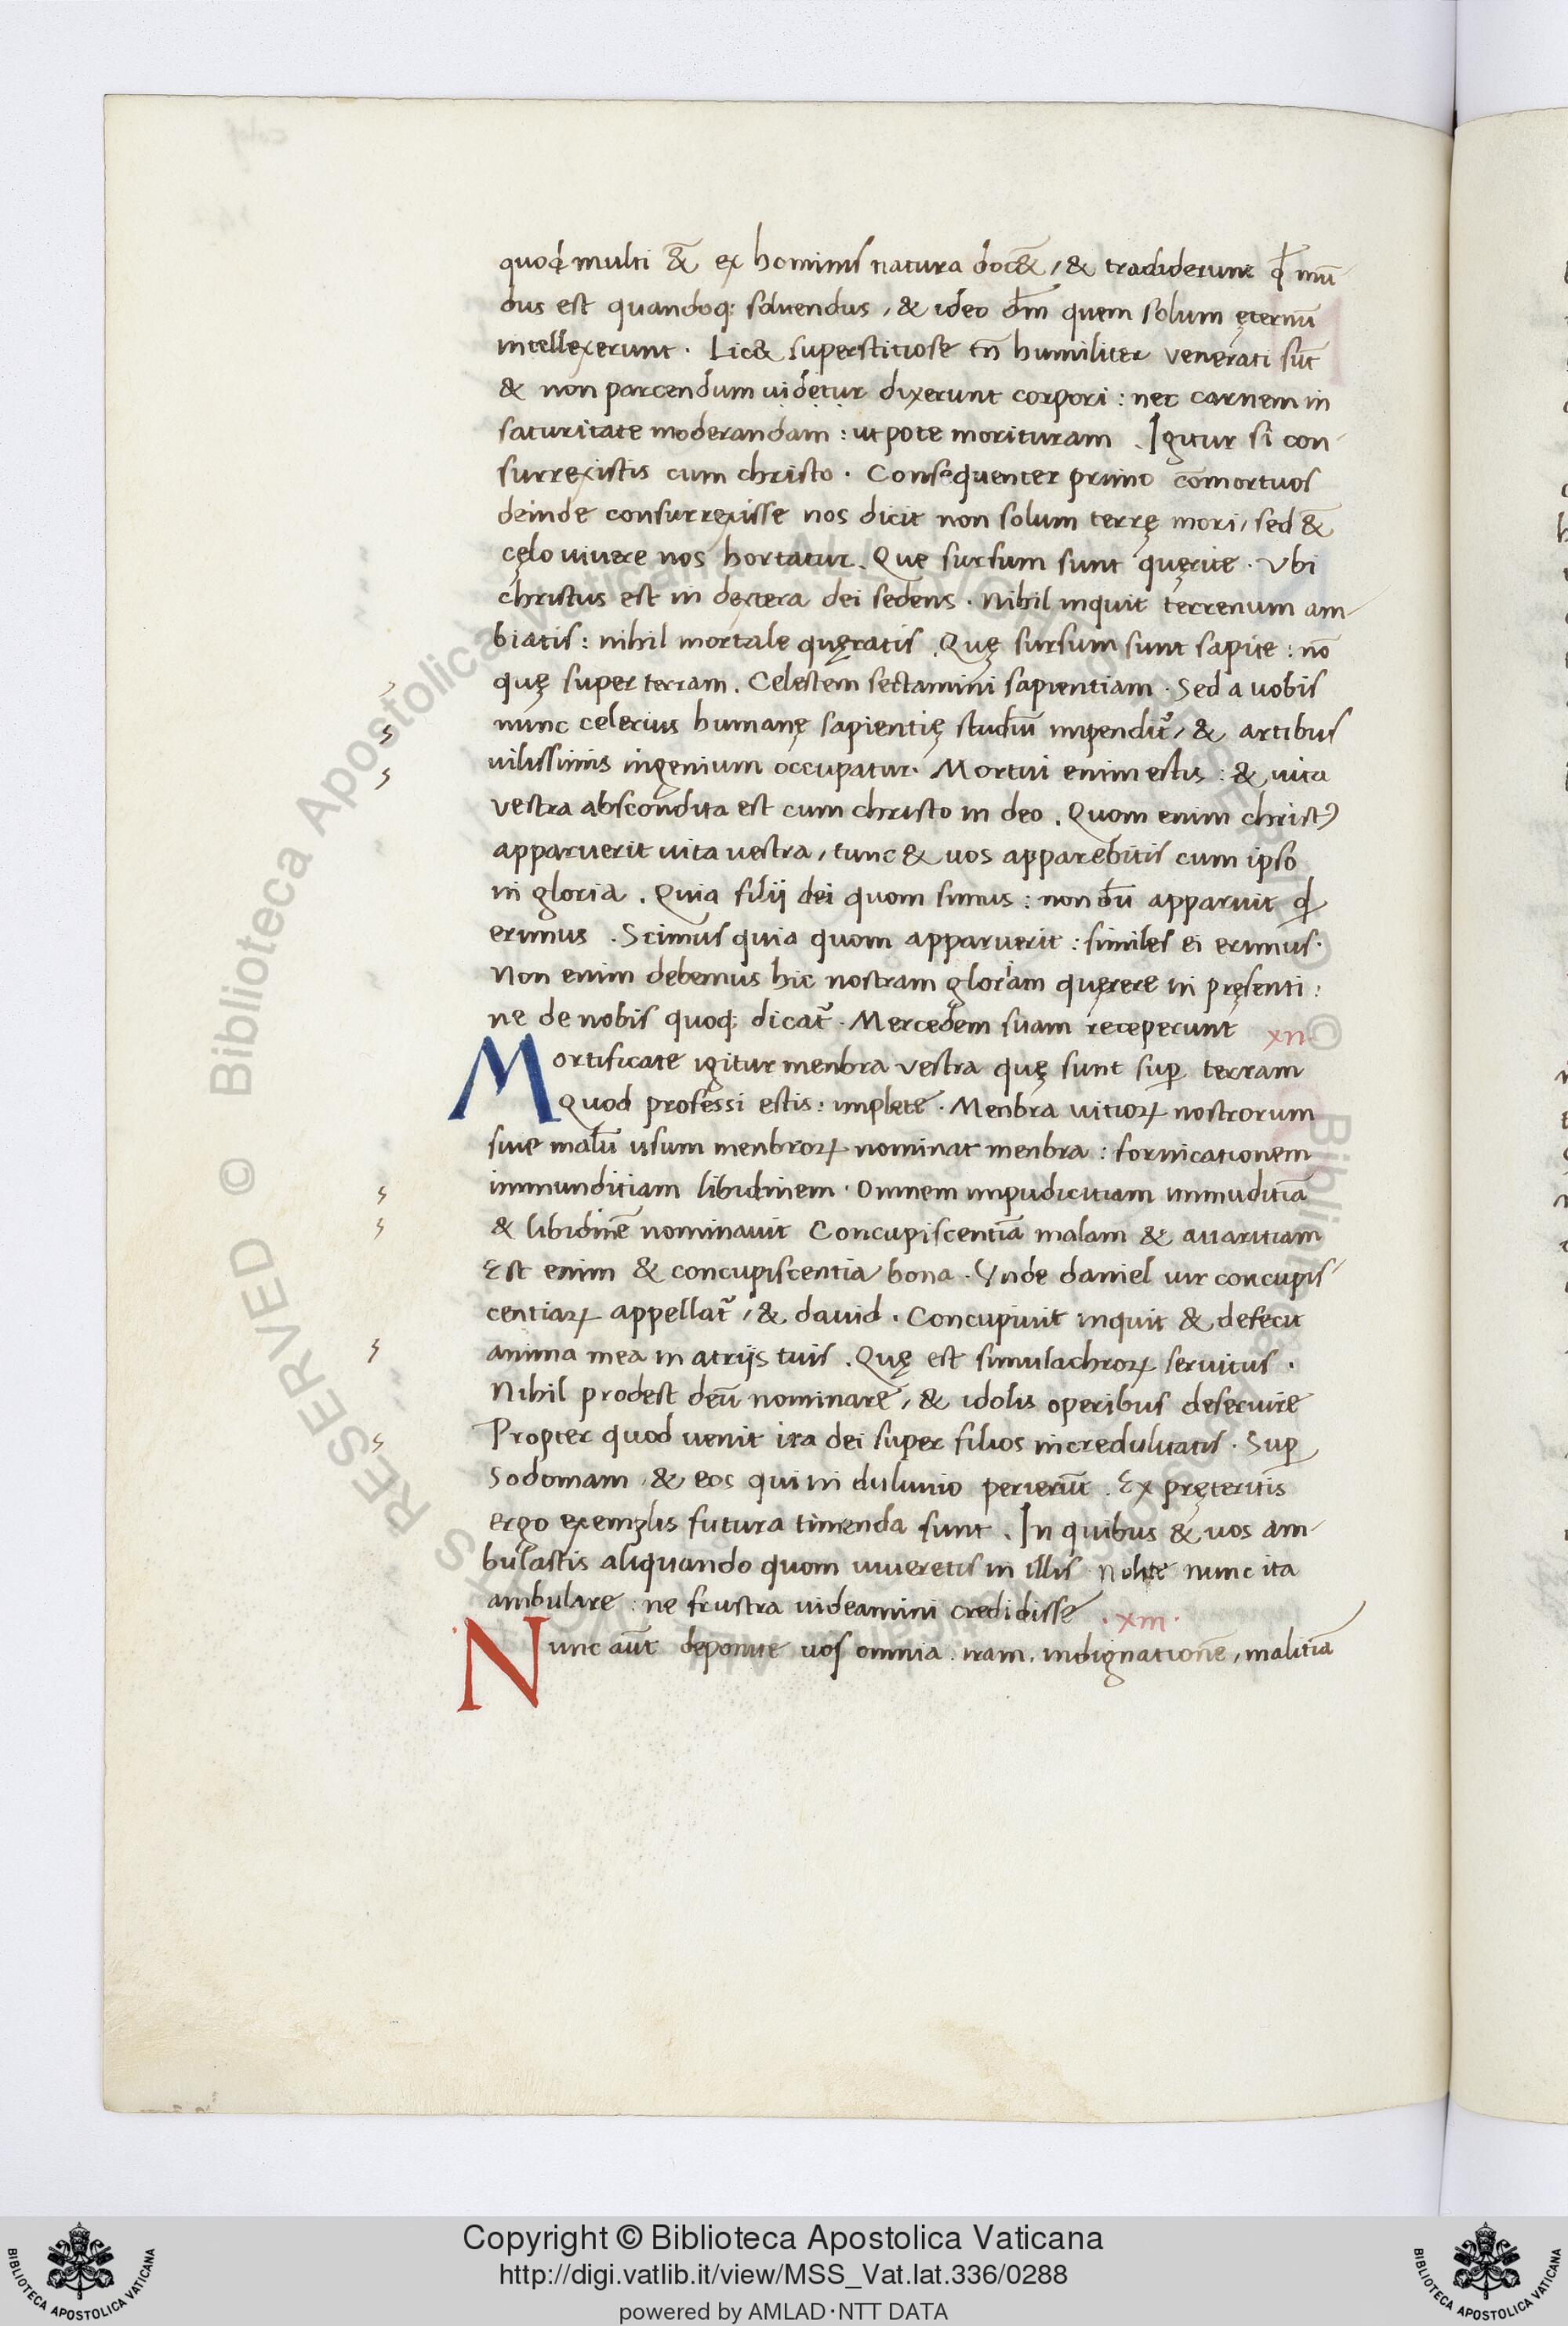 quod multi &̄ ex hominis natura doc&̄, & tradiderunt ꝙ mū
dus est quandoq; soluendus, & ideo dm̄ quem solum ęternū
intellexerunt. Lic& superstitiose tn̄ humiliter venerati sūt
& non parcendum uidetur dixerunt corpori: nec carnem in
saturitate moderandam: ut pote morituram. Igitur si con-
surrexistis cum christo. Consequenter primo cōmortuos
deinde consurrexisse nos dicit non solum terrę mori, sed &̄
cęlo uiuere nos hortatur. Que sursum sunt quęrite. Vbi
christus est in dextera dei sedens. Nihil inquit terrenum am-
biatis: nihil mortale quęratis. Quę sursum sunt sapite: nō
quę super terram. Celestem sectamini sapientiam. Sed a uobis
nunc celerius humanę sapientię studiū impendit᷑, & artibus
uilissimis ingenium occupatur. Mortui enim estis: & uita
vestra abscondita est cum christo in deo. Quom enim christꝰ
apparuerit uita uestra, tunc & uos apparebitis cum ipso
in gloria. Quia filij dei quom simus: non dū apparuit qđ
erimus. Scimus quia quom apparuerit: similes ei erimus.
Non enim debemus hic nostram gloriam quęrere in pręsenti:
ne de nobis quoq; dicat᷑. Mercedem suam receperunt xii
Mortificate igitur menbra vestra quę sunt suꝑ terram
Quod professi estis: implete. Menbra uitioꝝ nostrorum
siue malū usum menbroꝝ nominat menbra: fornicationem
immunditiam libidinem. Omnem impudicitiam immuditiā
& libidinē nominauit Concupiscentiā malam & auaritiam
Est enim & concupiscentia bona. Vnde daniel uir concupis-
centiaꝝ appellat᷑, & dauid. Concupiuit inquit & defecit
anima mea in atrijs tuis. Quę est simulachroꝝ seruitus.
Nihil prodest deū nominare, & idolis operibus deseruire
Propter quod uenit ira dei super filios incredulitatis. Suꝑ
Sodomam, & eos qui in diluuio perierūt. Ex pręteritis
ergo exemplis futura timenda sunt. In quibus & uos am-
bulastis aliquando quom uiueretis in illis. Nolite nunc ita
ambulare: ne frustra uideamini credidisse. xiii.
Nunc aūt deponite uos omnia. iram, indignationē, malitiā
Copyright © Biblioteca Apostolica Vaticana
http://digi.vatlib.it/view/MSS_Vat.lat.336/0288
powered by AMLAD·NTT DATA
BIBLIOTECA APOSTOLICA VATICANA
BIBLIOTECA APOSTOLICA VATICANA